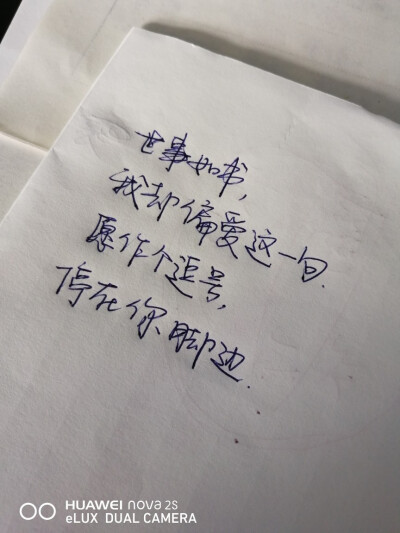 世事如书,
我却偏爱这一句.
愿作个逗号,
停在你脚边.
HUAWEI nova 2S
eLUX DUAL CAMERA